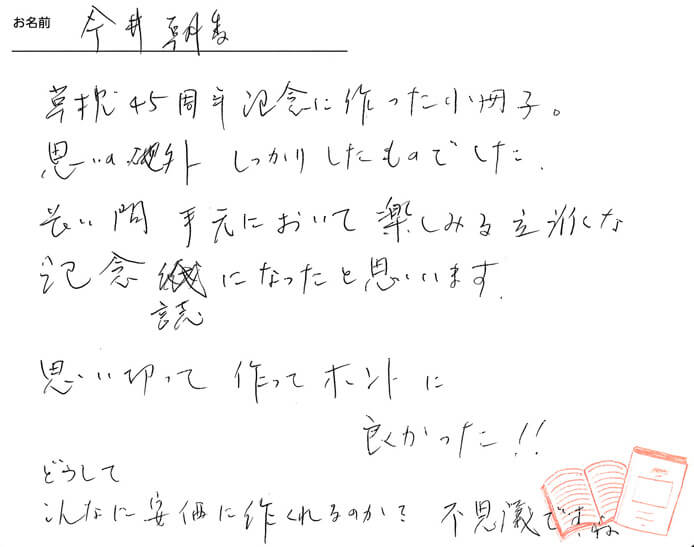 お名前 今井
草枕45周年記念に作った小冊子。
思いの外 しっかりしたものでした.
長い間 手元において楽しみる立派な
記念誌になったと思いいます.
思い切って 作って ホントに
良かった!!
どうして
こんなに安価に作くれるのか? 不思議ですね